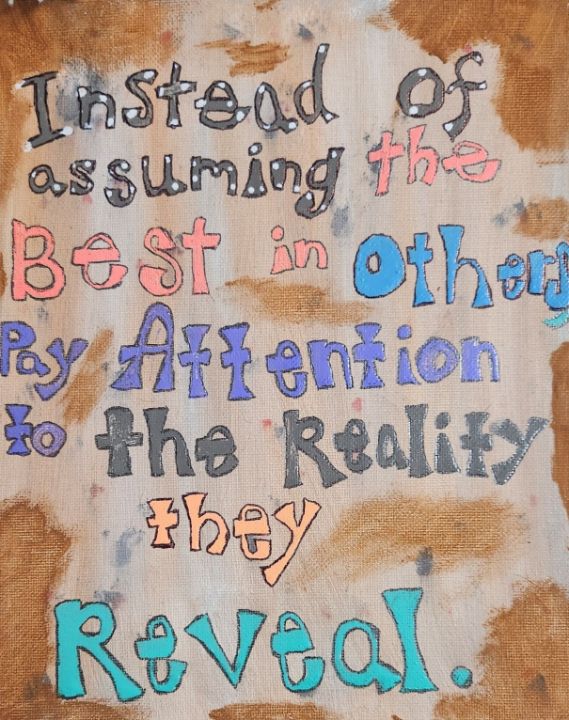 Instead of
assuming the
Best in Others
Pay Attention
to the Reality
they
Reveal.